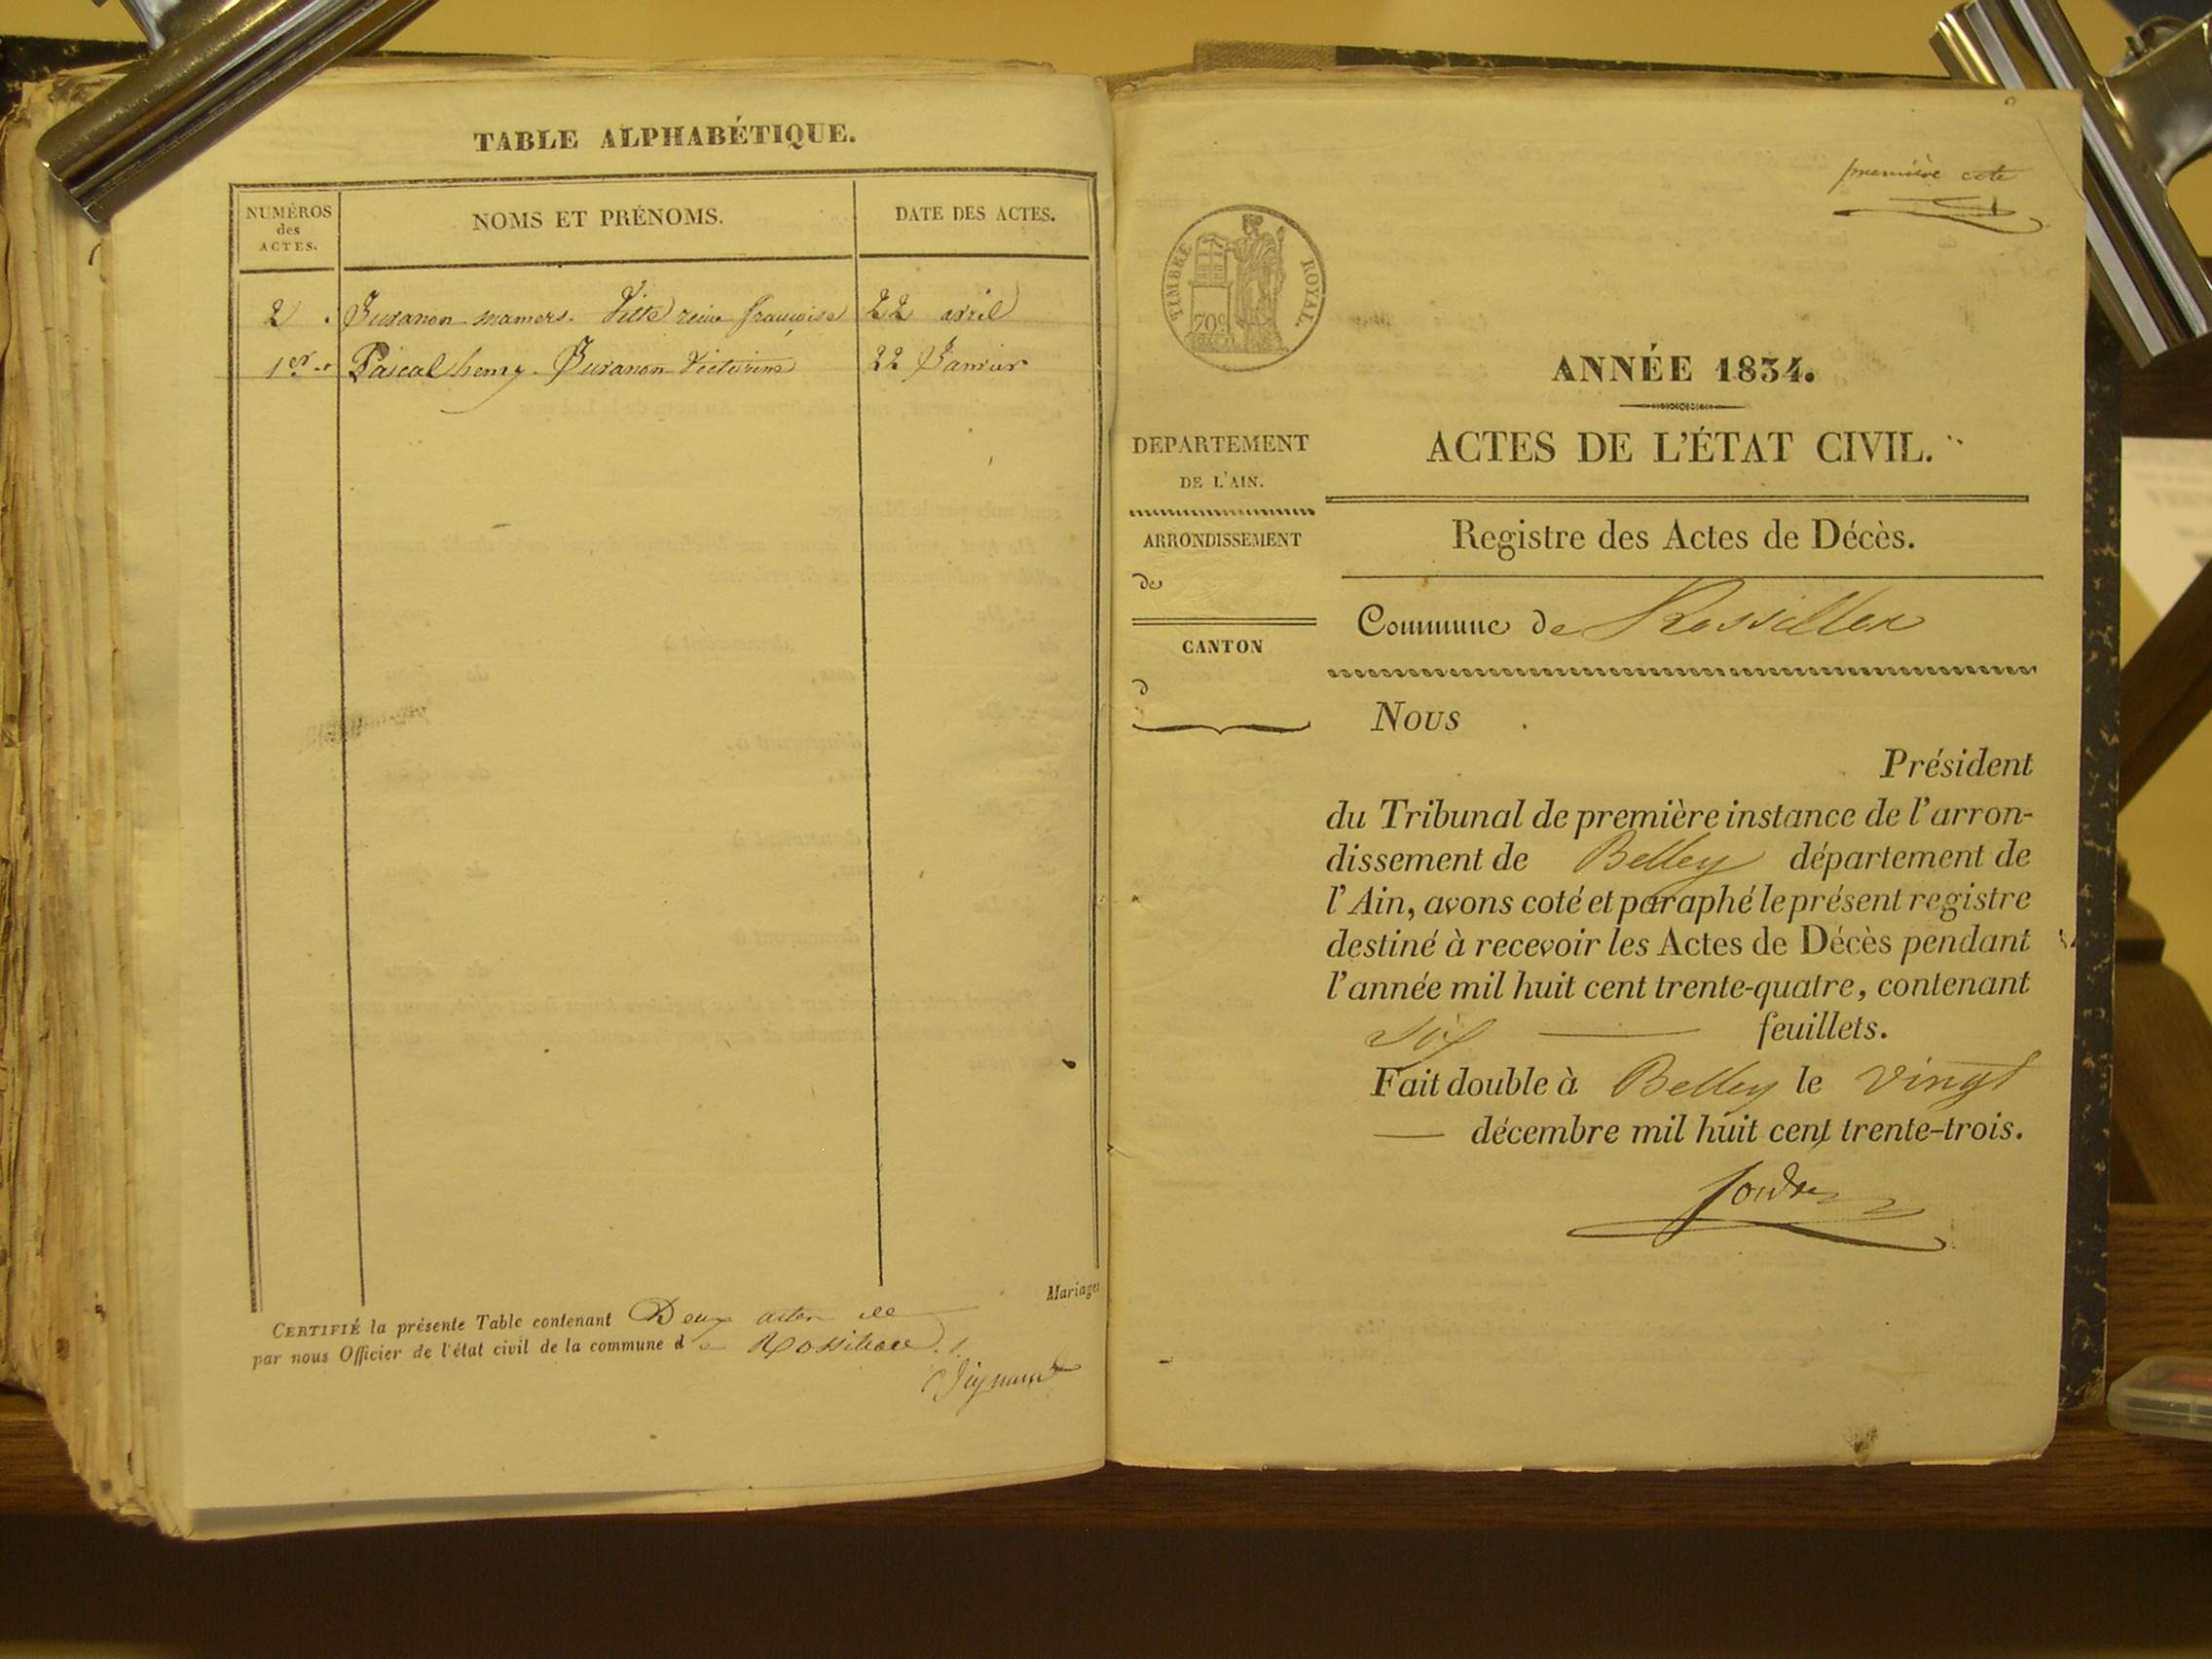 TABLE ALPHABÉTIQUE.
NUMÉROS
des
ACTES.
NOMS ET PRÉNOMS.
DATE DES ACTES.
2 Juvanon mamers. Vitte reine françoise 22 avril
1er Pascal henry. Juvanon Victorine 22 Janvier
Mariages
CERTIFIÉ la présente Table contenant Deux actes de
par nous Officier de l'état civil de la commune de Rossillon
première cote
TIMBRE ROYAL.
70c
ANNÉE 1834.
ACTES DE L'ÉTAT CIVIL.
DEPARTEMENT
DE L'AIN.
ARRONDISSEMENT
de
CANTON
d
Registre des Actes de Décès.
Commune de Rossillon
Nous
Président
du Tribunal de première instance de l'arron-
dissement de Belley département de
l'Ain, avons coté et paraphé le présent registre
destiné à recevoir les Actes de Décès pendant
l'année mil huit cent trente-quatre, contenant
six feuillets.
Fait double à Belley le vingt
décembre mil huit cent trente-trois.